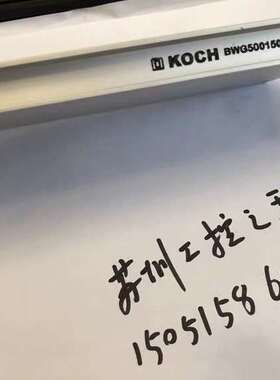 KOCH BWG500150
苏州工控之
15051586